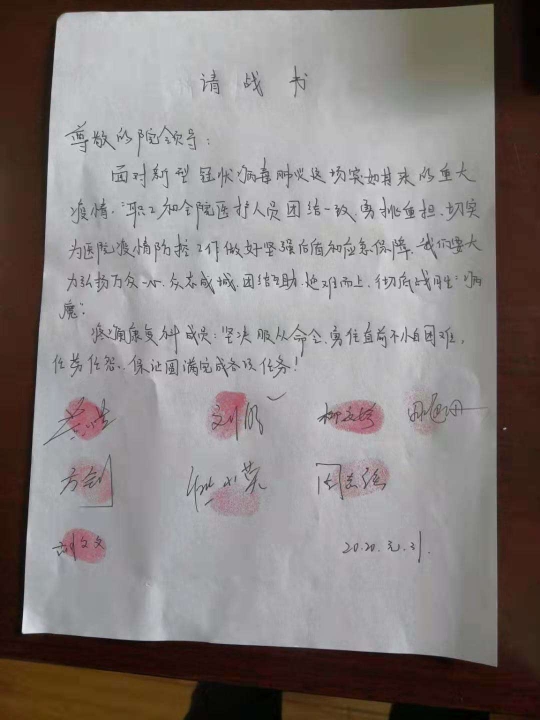 请战书
尊敬的院领导:
面对新型冠状病毒肺炎这场突如其来的重大
疫情,职工和全院医护人员团结一致,勇挑重担,切实
为医院疫情防控工作做好坚强后盾和应急保障,我们要大
力弘扬万众一心、众志成城,团结互助,迎难而上,彻底战胜“病
魔”。
疼痛康复科成员:坚决服从命令,勇往直前不怕困难,
任劳任怨、保证圆满完成各项任务!
方剑
刘文文
2020.元.31.